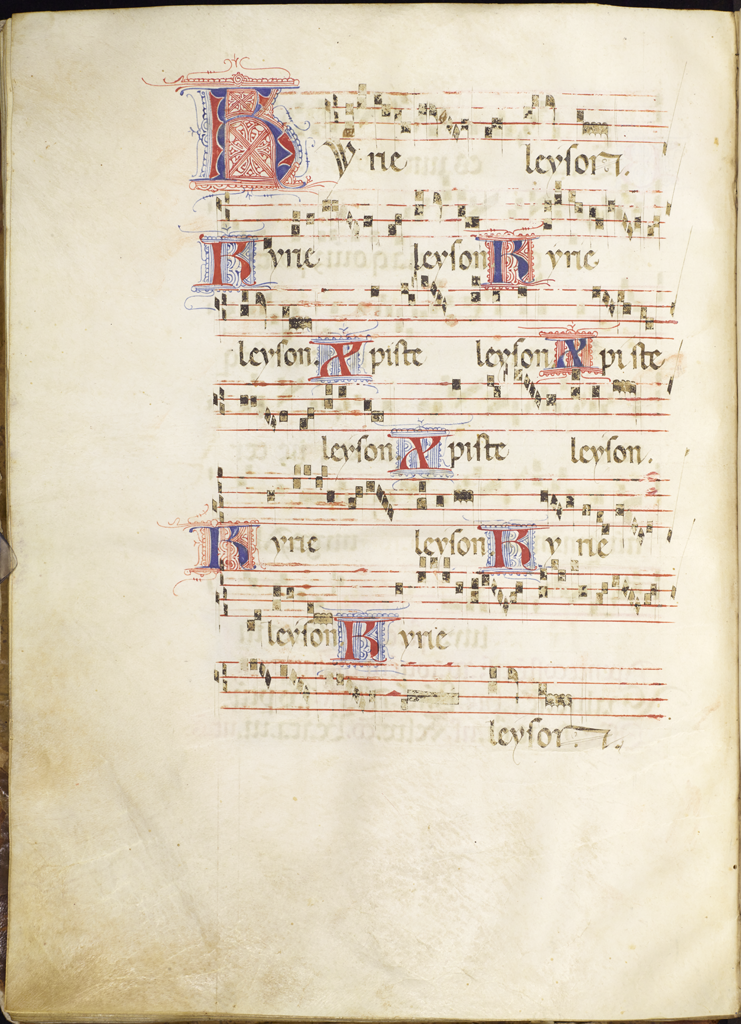 Kyrie leyson.
Kyrie leyson Kyrie
leyson. Xpiste leyson Xpiste
leyson Xpiste leyson.
Kyrie leyson Kyrie
leyson Kyrie
leyson.